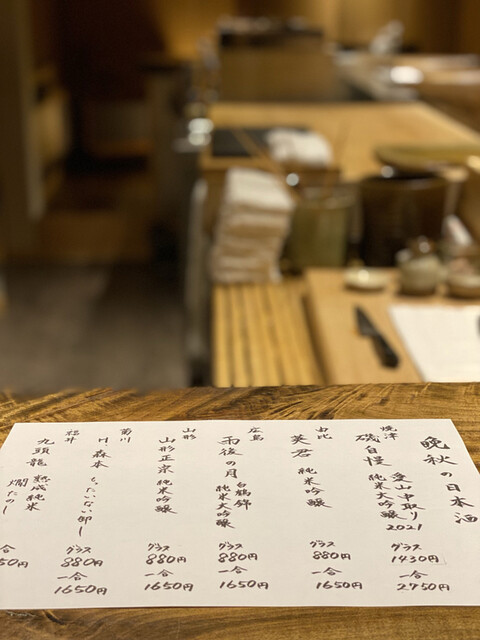 晩秋の日本酒
焼津
磯自慢 愛山中取り
純米大吟醸2021
グラス
1430円
一合
2750円
由比
英君 純米吟醸
グラス
880円
一合
1650円
広島
雨後の月 白鶴錦
純米大吟醸
グラス
880円
一合
1650円
山形
山形正宗 純米吟醸
グラス
880円
一合
1650円
菊川
森本 もったいない卸し
グラス
880円
一合
1650円
福井
九頭龍 熟成純米
燗たのし
一合
50円